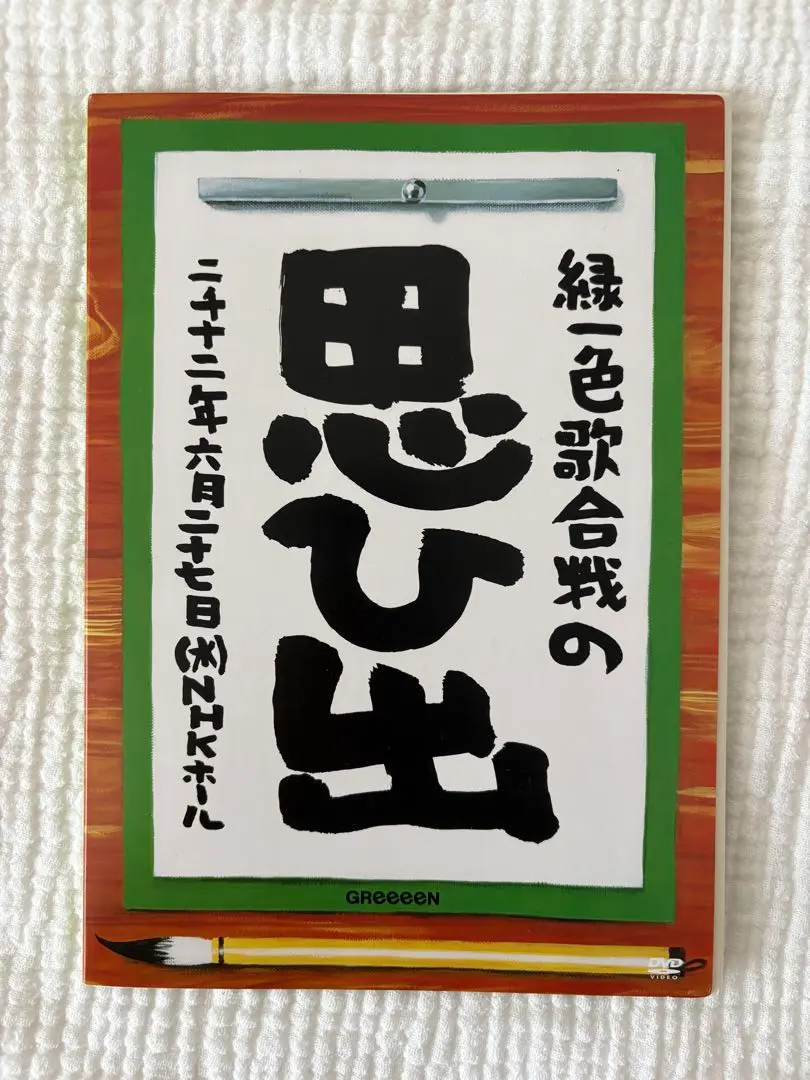 緑一色歌合戦の
思ひ出
二千十二年六月二十七日(水)NHKホール
GReeeeN
DVD
VIDEO